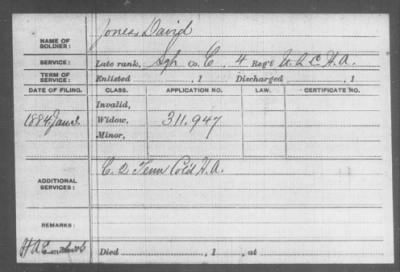 NAME OF SOLDIER: Jones, David
SERVICE: Late rank, Sgt, Co. C, 4 Reg't U.S.C.H.A.
TERM OF SERVICE: Enlisted , 1 Discharged , 1
DATE OF FILING. CLASS. APPLICATION NO. LAW. CERTIFICATE NO.
Invalid,
1884 Jan 2 Widow, 311,947
Minor,
ADDITIONAL SERVICES: C. 2 Tenn Col'd H.A.
REMARKS:
Died , 1 , at